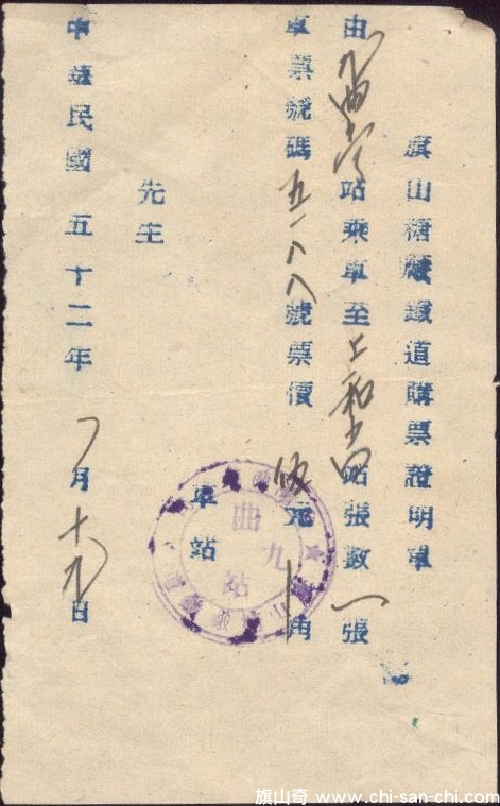 旗山糖廠鐵道購票證明單
由九曲堂站乘車至上和站張數一張
車票號碼五一八八號票價元角
車站
先生
中華民國五十二年月十九日
九曲站
旗山奇 www.chi-san-chi.com